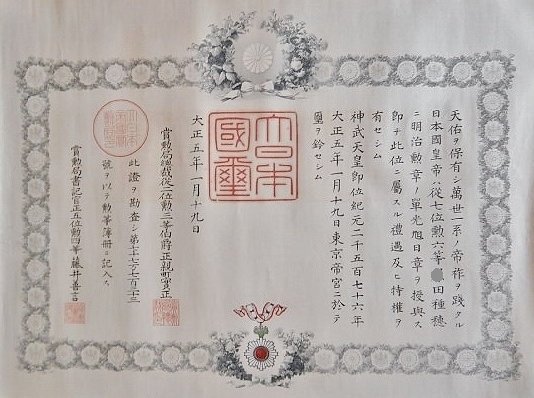 天佑ヲ保有シ萬世一系ノ帝祚ヲ踐タル
日本國皇帝ハ從七位勲六等田種穂
ニ明治勲章ノ單光旭日章ヲ授與ス
卽チ此位ニ屬スル禮遇及ヒ特權ヲ
有セシム
神武天皇卽位紀元二千五百七十六年
大正五年一月十九日東京帝宮ニ於テ
璽ヲ鈐セシム
大日本國璽
大正五年一月十九日
賞勲局總裁從二位勲三等伯爵正親町實正
此證ヲ勘査シ第七十七万七百二十三
號ヲ以テ勲等簿冊ニ記入ス
賞勲局書記官正五位勲四等藤井善言